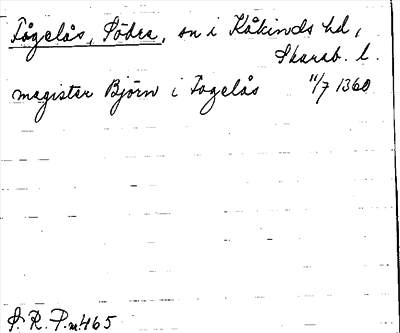 Fågelås, Södra, sn i Kåkinds hd,
Skarab. l.
magister Björn i Fogelås 11/7 1360
S. R. P. n. 465